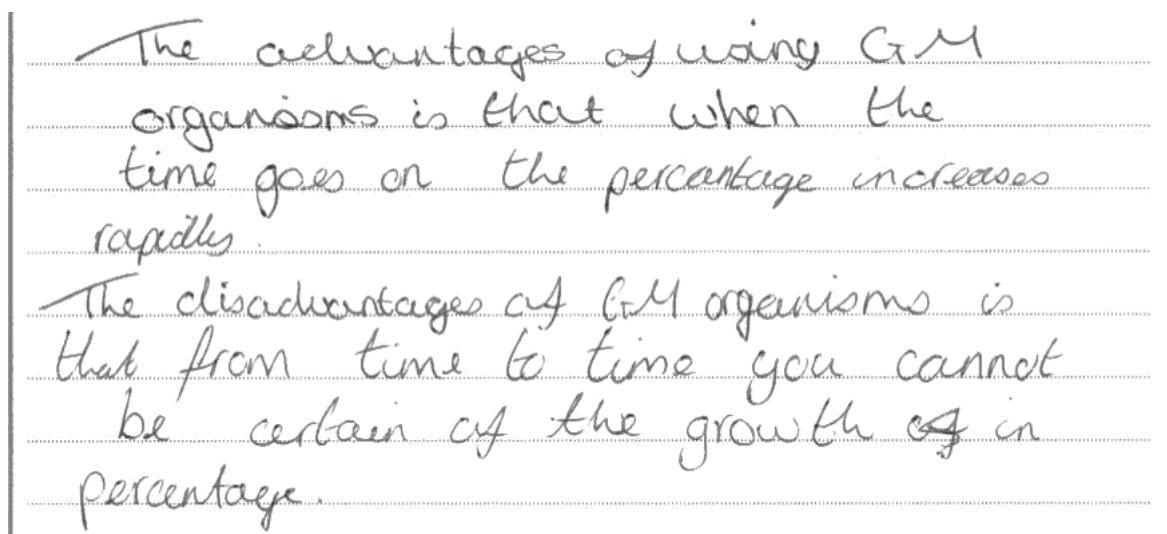 The advantages of using GM
organisms is that when the
time goes on the percantage increases
rapidly.
The disadvantages of GM organisms is
that from time to time you cannot
be certain of the growth of in
percentage.